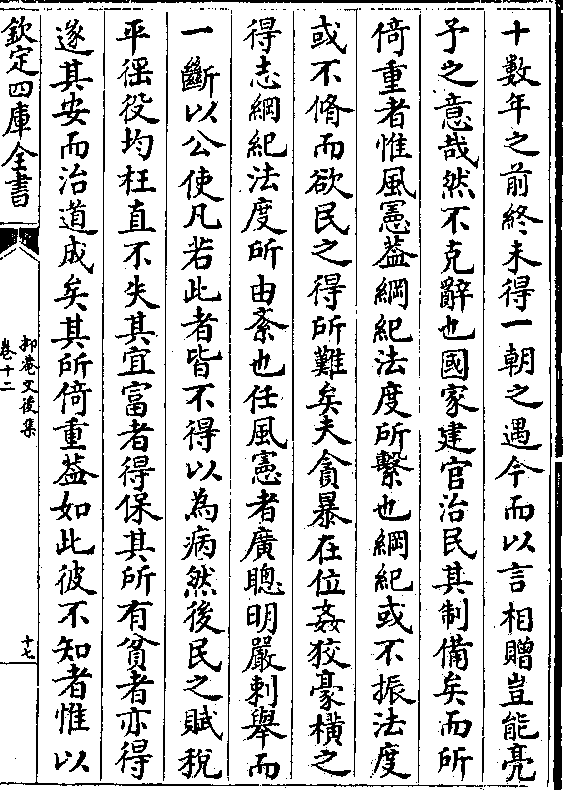 十數年之前終未得一朝之遇今而以言相贈豈能亮
予之意哉然不克辭也國家建官治民其制備矣而所
倚重者惟風憲葢綱紀法度所繫也綱紀或不振法度
或不脩而欲民之得所難矣夫貪暴在位姦狡豪横之
得志綱紀法度所由紊也任風憲者廣聰明嚴刺舉而
一斷以公使凡若此者皆不得以為病然後民之賦稅
平徭役均枉直不失其宜富者得保其所有貧者亦得
遂其安而治道成矣其所倚重葢如此彼不知者惟以
欽定四庫全書
抑菴文後集
卷十二
十七